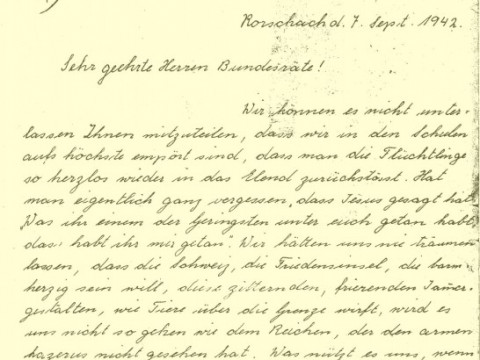 Rorschach d. 7. Sept. 1942.
Sehr geehrte Herren Bundesräte!
Wir können es nicht unter-
lassen Ihnen mitzuteilen, dass wir in den Schulen
aufs höchste empört sind, dass man die Flüchtlinge
so herzlos wieder in das Elend zurückstösst. Hat
man eigentlich ganz vergessen, dass Jesus gesagt hat
"Was ihr einem der Geringsten unter euch getan habt,
das habt ihr mir getan." Wir hätten uns nie träumen
lassen, dass die Schweiz, die Friedensinsel, die barm-
herzig sein will, diese zitternden, frierenden Jammer-
gestalten, wie Tiere über die Grenze wirft, wird es
uns nicht so gehen wie dem Reichen, der den armen
Lazarus nicht gesehen hat. Was nützt es uns, wenn